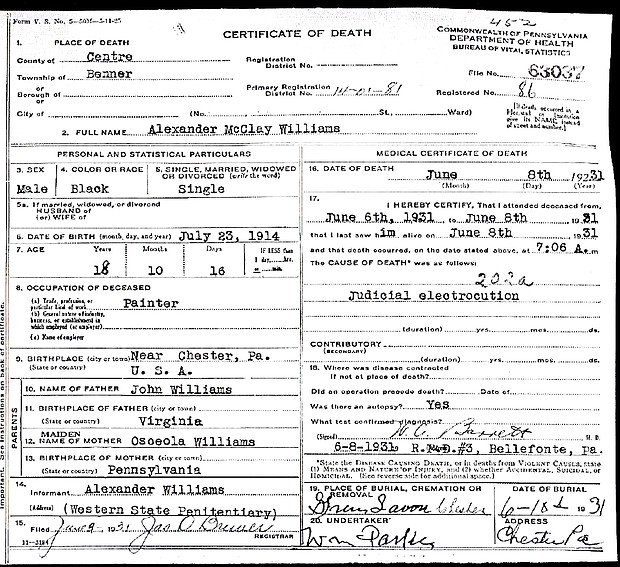 Form V. S. No. 5—50M—3-11-25
452
CERTIFICATE OF DEATH
COMMONWEALTH OF PENNSYLVANIA
DEPARTMENT OF HEALTH
BUREAU OF VITAL STATISTICS
1. PLACE OF DEATH
County of Centre
Township of Benner
or
Borough of
or
City of (No. St., Ward)
Registration
District No.
Primary Registration
District No.
File No. 63037
Registered No. 86
[If death occurred in a
Hospital or Institution
give its NAME instead
of street and number.]
2. FULL NAME Alexander McClay Williams
PERSONAL AND STATISTICAL PARTICULARS
3. SEX
Male
4. COLOR OR RACE
Black
5. SINGLE, MARRIED, WIDOWED
OR DIVORCED (write the word)
Single
5a. If married, widowed, or divorced
HUSBAND of
(or) WIFE of
6. DATE OF BIRTH (month, day, and year) July 23, 1914
7. AGE Years Months Days IF LESS than
1 day, hrs.
or min.
18 10 16
8. OCCUPATION OF DECEASED
(a) Trade, profession, or
particular kind of work Painter
(b) General nature of industry,
business, or establishment in
which employed (or employer)
(c) Name of employer
9. BIRTHPLACE (city or town) Near Chester, Pa.
(State or country) U. S. A.
PARENTS
10. NAME OF FATHER John Williams
11. BIRTHPLACE OF FATHER (city or town)
(State or country) Virginia
MAIDEN
12. NAME OF MOTHER Osceola Williams
13. BIRTHPLACE OF MOTHER (city or town)
(State or country) Pennsylvania
14.
Informant Alexander Williams
(Address) (Western State Penitentiary)
15.
Filed June 9 - 1931 Jas O Brewer
REGISTRAR
11—3184
MEDICAL CERTIFICATE OF DEATH
16. DATE OF DEATH June 8th 19231
(Month) (Day) (Year)
17.
I HEREBY CERTIFY, That I attended deceased from
June 6th, 1931 to June 8th 1931
that I last saw him alive on June 8th 1931
and that death occurred, on the date stated above, at 7:06 A. m
The CAUSE OF DEATH* was as follows:
202a
Judicial electrocution
(duration) yrs. mos. ds.
CONTRIBUTORY
(SECONDARY)
(duration) yrs. mos. ds.
18. Where was disease contracted
if not at place of death?
Did an operation precede death? Date of
Was there an autopsy? Yes
What test confirmed diagnosis?
(Signed) M. D.
6-8-1931, R.F.D.#3, Bellefonte, Pa.
*State the DISEASE CAUSING DEATH, or in deaths from VIOLENT CAUSES, state
(1) MEANS AND NATURE OF INJURY, and (2) whether ACCIDENTAL, SUICIDAL, or
HOMICIDAL. (See reverse side for additional space.)
19. PLACE OF BURIAL, CREMATION OR
REMOVAL
Chester
DATE OF BURIAL
1931
20. UNDERTAKER
ADDRESS
Chester Pa
See instructions on back of certificate.
important.